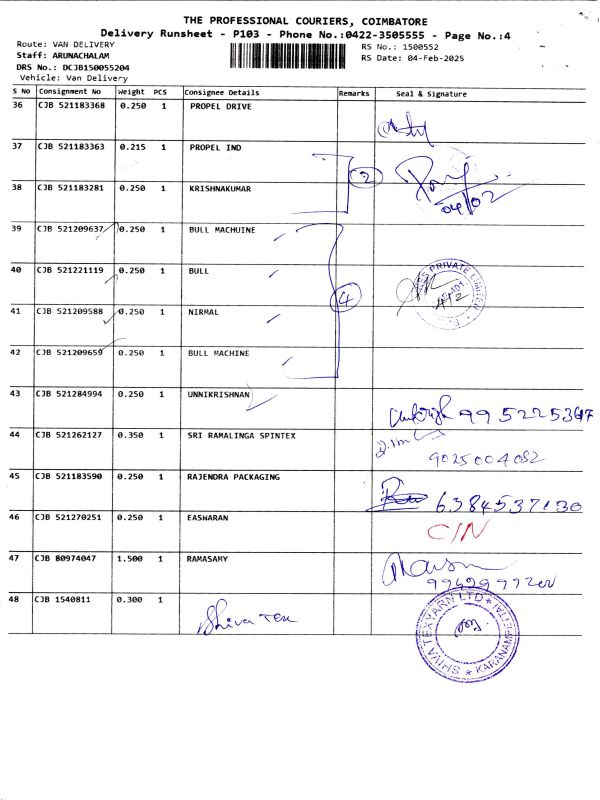 THE PROFESSIONAL COURIERS, COIMBATORE
Delivery Runsheet - P103 - Phone No.:0422-3505555 - Page No.:4
Route: VAN DELIVERY
RS No.: 1500552
Staff: ARUNACHALAM
RS Date: 04-Feb-2025
DRS No.: DCJB150055204
Vehicle: Van Delivery
S No Consignment No Weight PCS Consignee Details Remarks Seal & Signature
36 CJB 521183368 0.250 1 PROPEL DRIVE
37 CJB 521183363 0.215 1 PROPEL IND
2
38 CJB 521183281 0.250 1 KRISHNAKUMAR
04/02
39 CJB 521209637 0.250 1 BULL MACHUINE
40 CJB 521221119 0.250 1 BULL
PRIVATE LIMITED
4
41 CJB 521209588 0.250 1 NIRMAL
42 CJB 521209659 0.250 1 BULL MACHINE
43 CJB 521284994 0.250 1 UNNIKRISHNAN
44 CJB 521262127 0.350 1 SRI RAMALINGA SPINTEX
9025004082
45 CJB 521183590 0.250 1 RAJENDRA PACKAGING
6384537130
46 CJB 521270251 0.250 1 EASWARAN
C/N
47 CJB 80974047 1.500 1 RAMASAMY
48 CJB 1540811 0.300 1 Shiva Tex
SHIVA TEXYARN LTD
KARANAMPETTAI